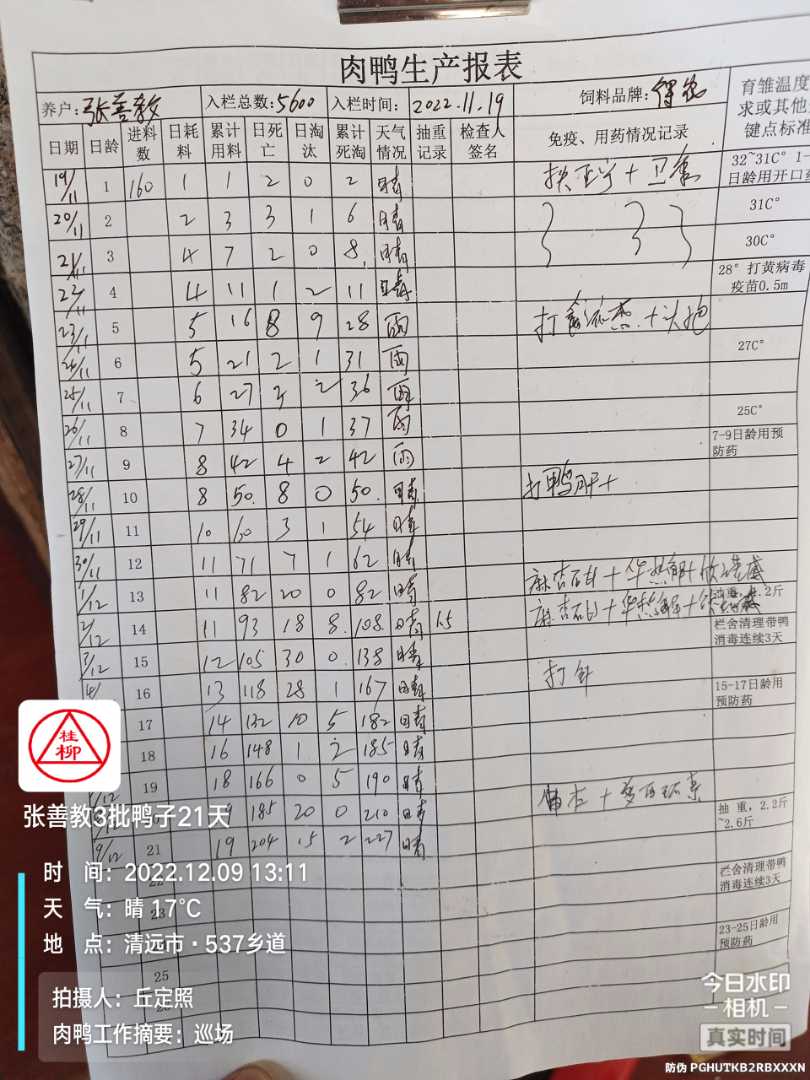 肉鸭生产报表
养户: 张善教 入栏总数: 5600 入栏时间: 2022.11.19 饲料品牌: 育雏温度
求或其他
键点标准
日期 日龄 进料数 日耗料 累计用料 日死亡 日淘汰 累计死淘 天气情况 抽重记录 检查人签名 免疫、用药情况记录
19/11 1 160 1 1 2 0 2 晴 32~31C° 1-
日龄用开口
20/11 2 2 3 3 1 6 晴 31C°
21/11 3 4 7 2 0 8 晴 30C°
22/11 4 4 11 1 2 11 晴 28° 打黄病毒
疫苗0.5m
23/11 5 5 16 8 9 28 雨 打
24/11 6 5 21 2 1 31 雨 27C°
25/11 7 6 27 3 2 36 雨
26/11 8 7 34 0 1 37 雨 25C°
27/11 9 8 42 4 2 42 雨 7-9日龄用预
防药
28/11 10 8 50 8 0 50 晴 打鸭肝+
29/11 11 10 60 3 1 54 晴
30/11 12 11 71 7 1 62 晴
1/12 13 11 82 20 0 82 晴 麻杏石甘+华热解+
2/12 14 11 93 18 8 108 晴 1.5 麻杏石甘+华热解+ 栏舍清理带鸭
消毒连续3天
3/12 15 12 105 30 0 138 晴
4/ 16 13 118 28 1 167 晴 打针 15-17日龄用
预防药
17 14 132 10 5 182 晴
18 16 148 1 2 185 晴
19 18 166 0 5 190 晴
9 185 20 0 210 晴 抽 重, 2.2斤
~2.6斤
9/12 21 19 204 15 2 227 晴
22 栏舍清理带鸭
消毒连续3天
23
23-25日龄用
预防药
25
桂
柳
张善教3批鸭子21天
时 间: 2022.12.09 13:11
天 气: 晴 17℃
地 点: 清远市·537乡道
拍摄人: 丘定照
肉鸭工作摘要: 巡场
今日水印
相机
真实时间
防伪 PGHUTKB2RBXXXN